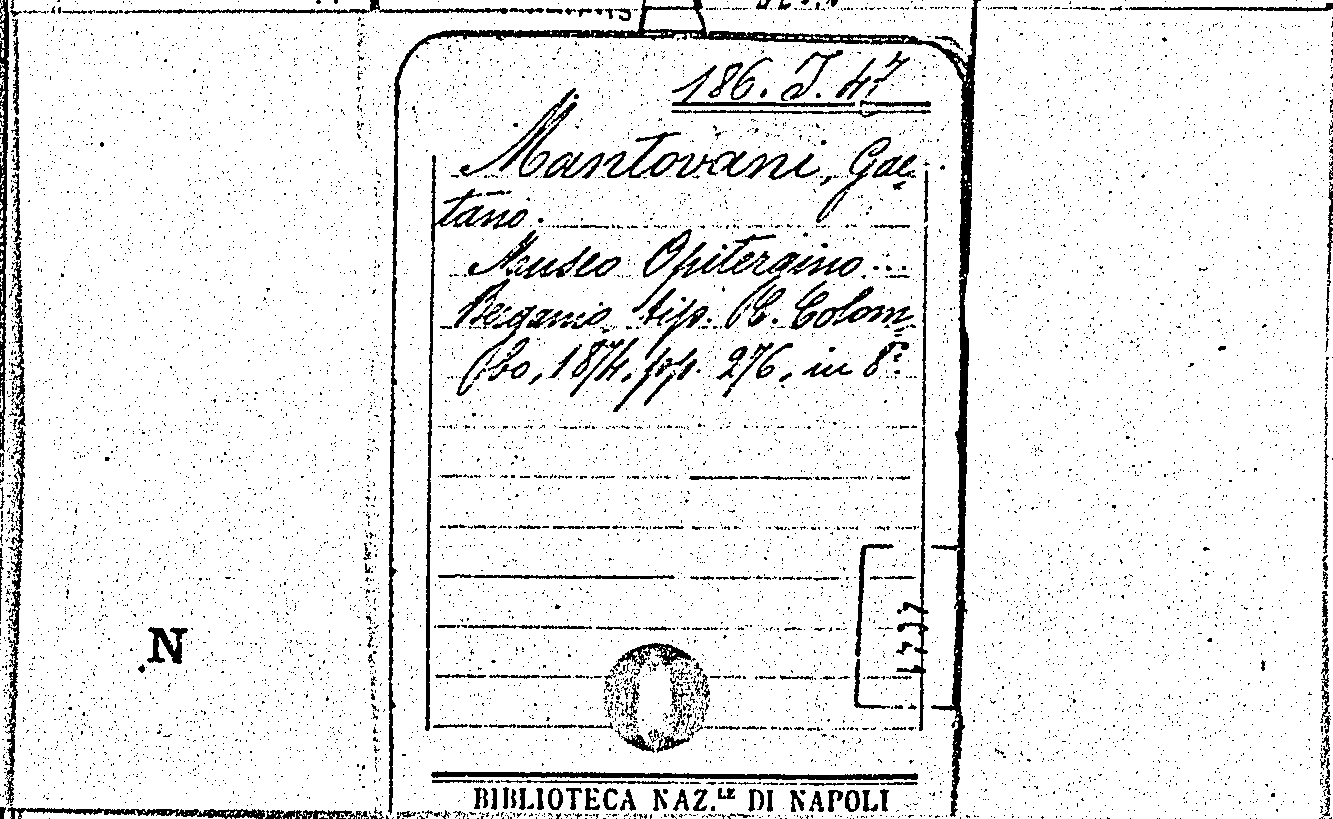 186. J. 47
Mantovani, Gae-
tano.
Museo Opitergino...
Bergamo, tip. E. Colom-
bo, 1874, pp. 276, in 8º
N
BIBLIOTECA NAZ.LE DI NAPOLI